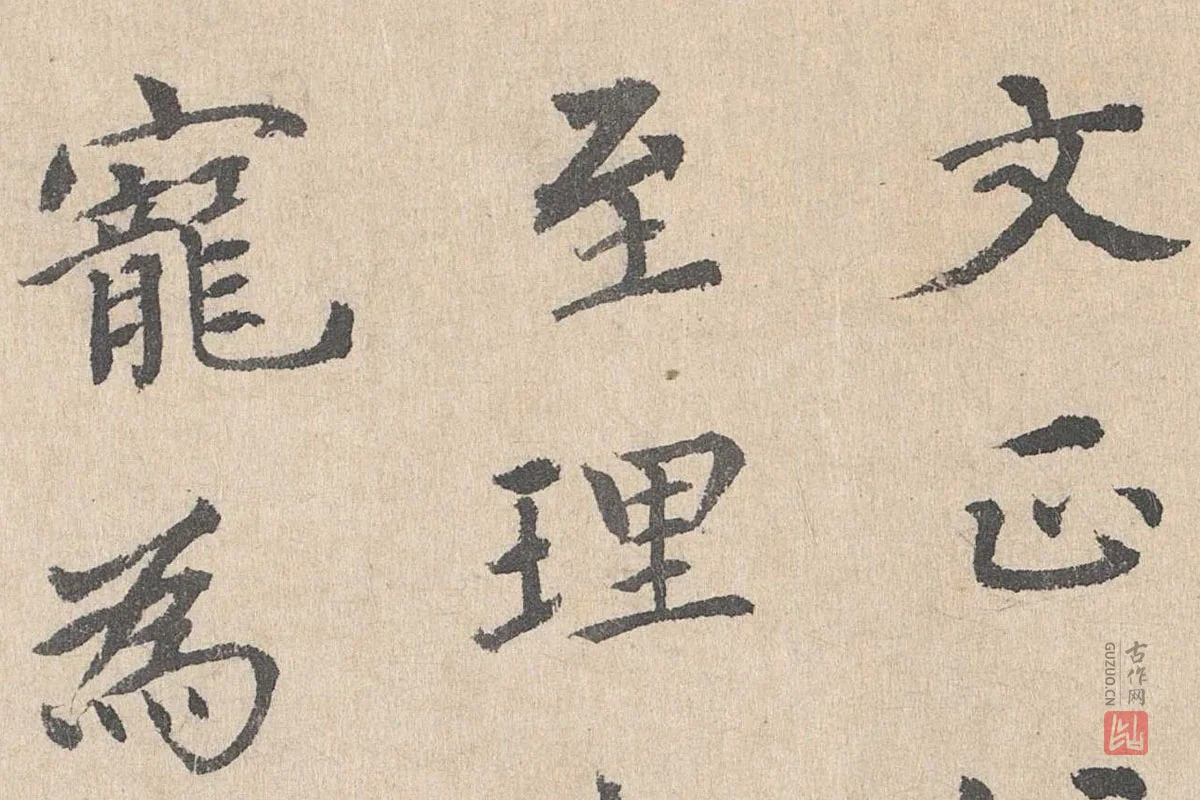 文正
至理
寵為
古作网
GUZUO.CN